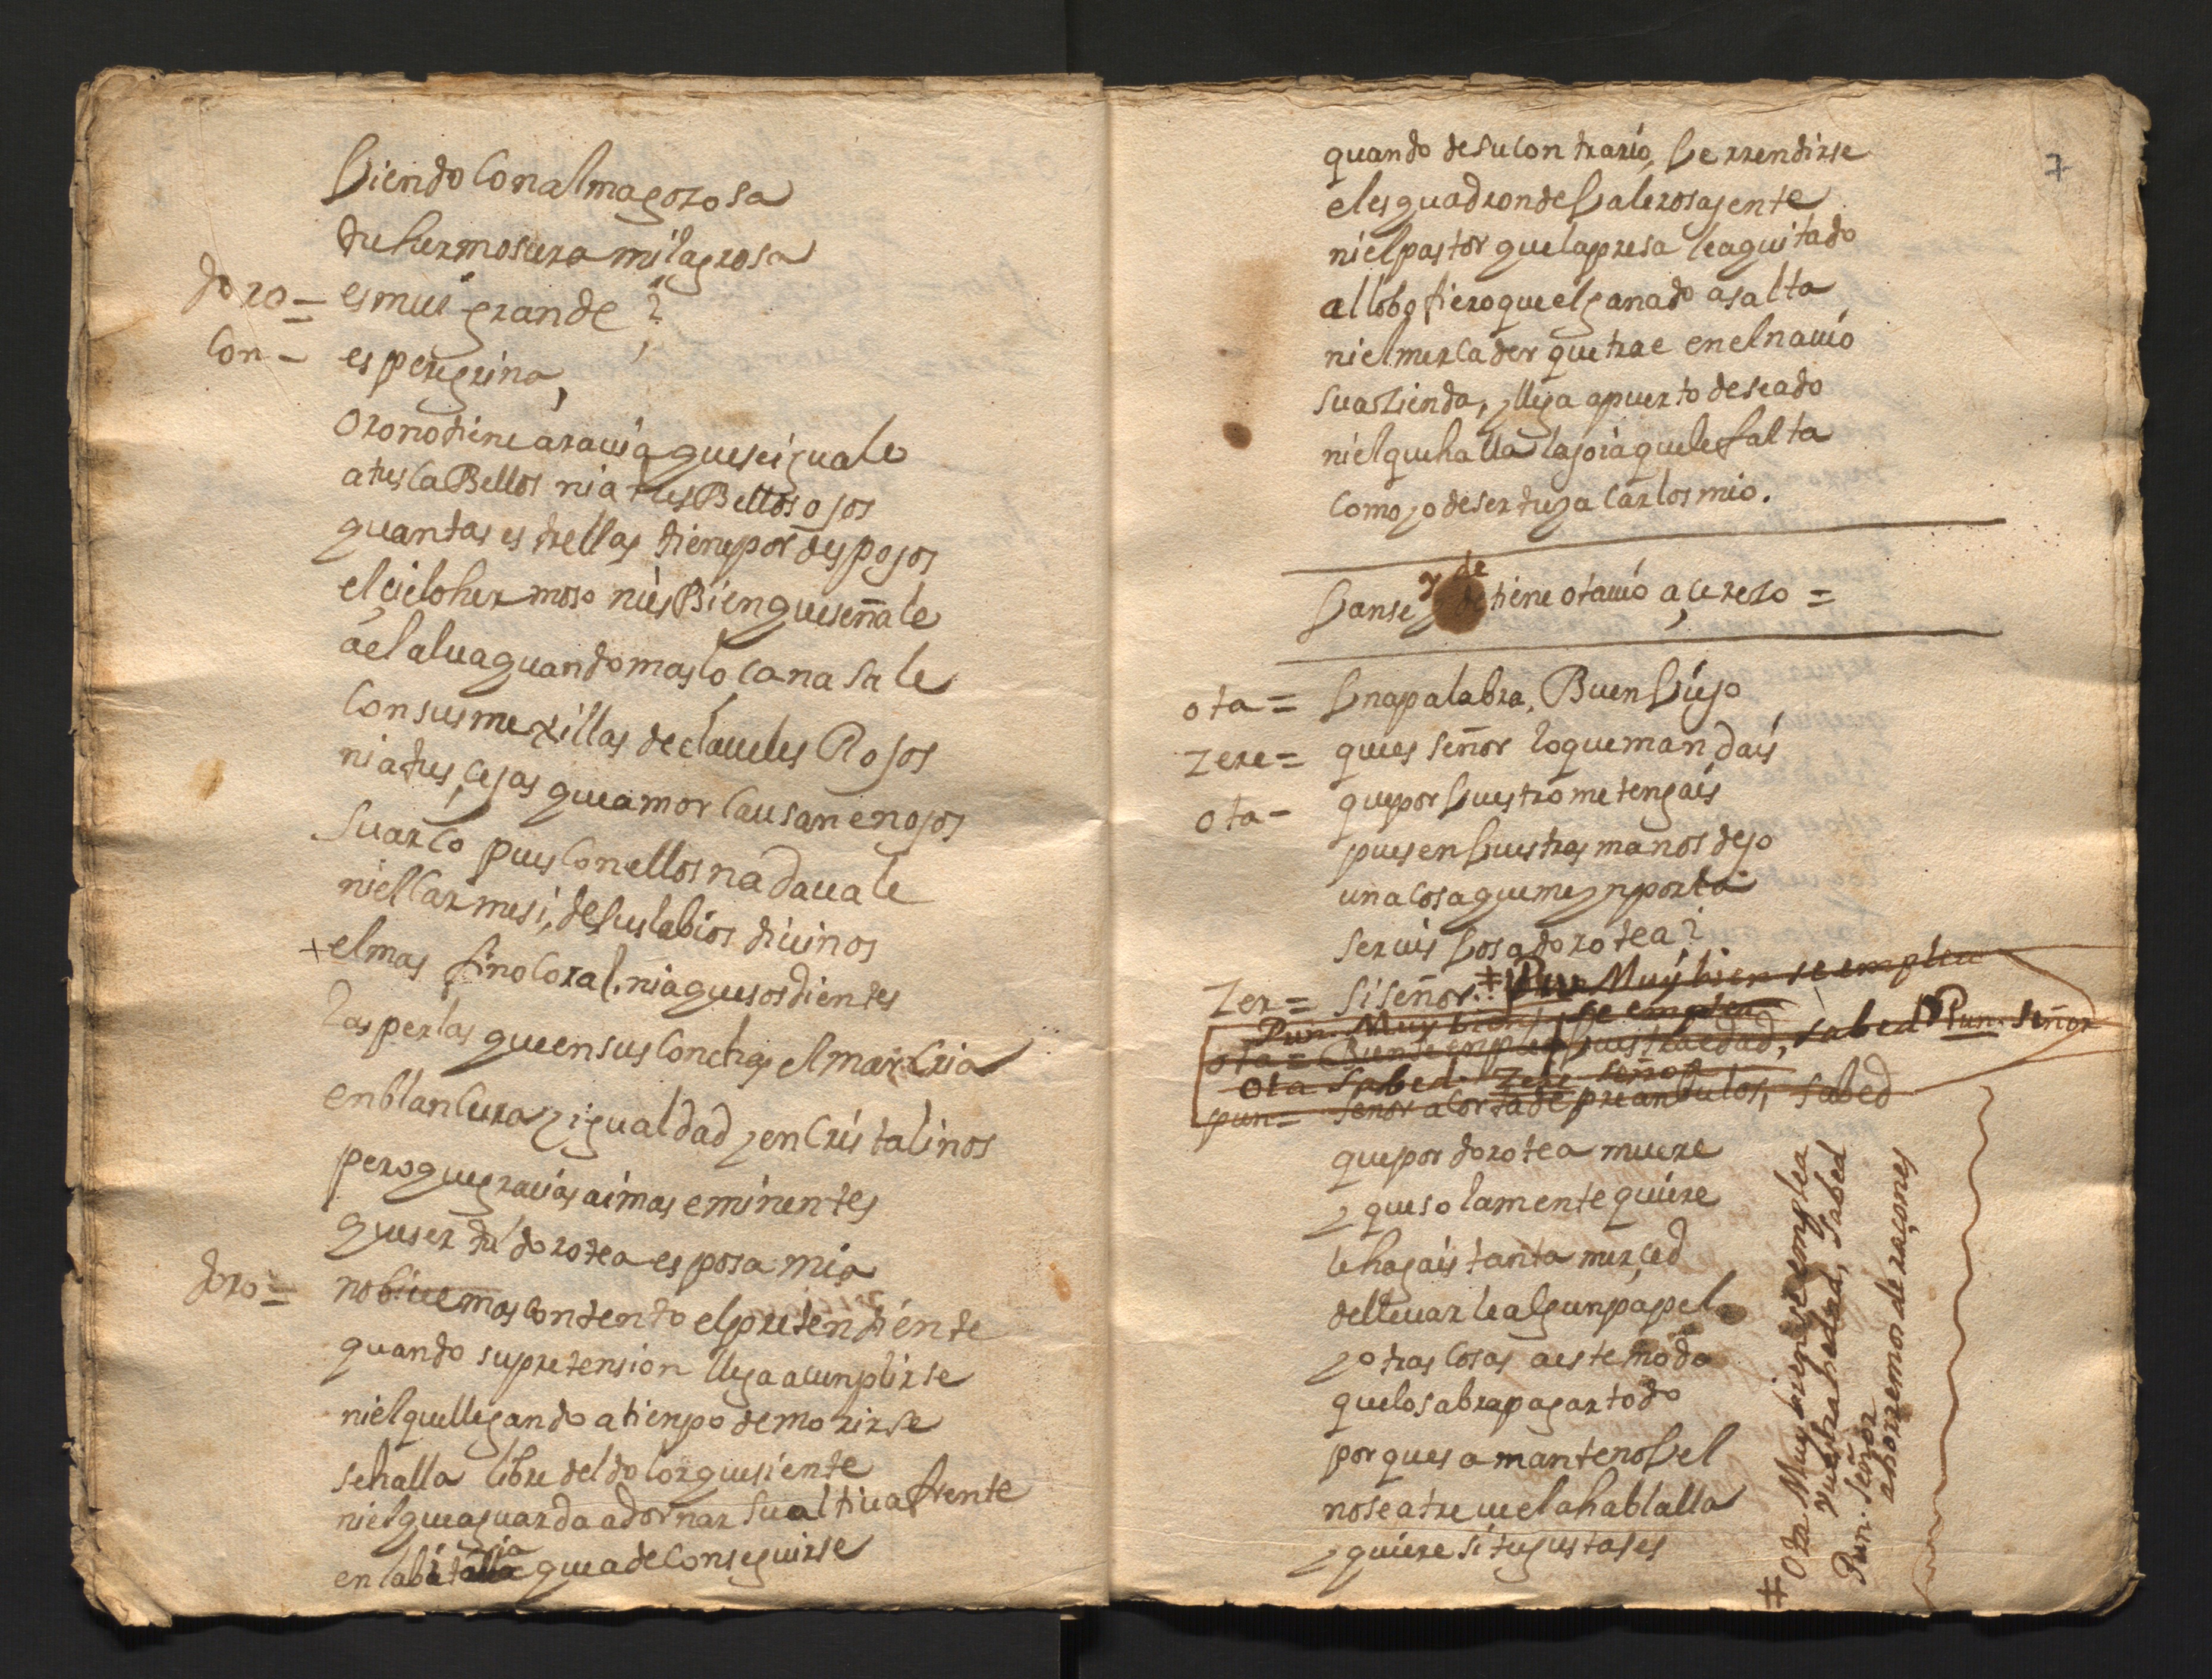 Viendo con alma gozosa
tu hermosura milagrosa
doro= es mui grande?
Con- es peregrina,
Oro no tiene aravia que se iguale
a tus caBellos ni a tus Bellos ojos
quantas estrellas tiene por despojos
el çielo hermoso nies Bien que señale
a el alva quando mas loçana sale
Con sus mexillas de claveles Rojos
ni a tus çejas que amor causan enojos
su arco pues con ellos nada vale
ni el carmesi, de sus labios divinos
+ el mas fino coral, ni a que sos dientes
las perlas que en sus conchas el mar cria
en blancura y igualdad y en cristalinos
pero que gracias ai mas eminentes
que ser tu dorotea esposa mia
doro= no bive mas contento el pretendiente
quando su pretension llega a cunplirse
ni el que llegando a tienpo de morirse
se halla libre del dolor que siente
ni el que aguarda adornar su altiva frente
en la que a de conseguirse
7
quando de su contrario, Ve rrendirse
el esquadron de Valerosa jente
ni el pastor que la presa le a quitado
al lobo fiero que el ganado asalta
ni el mercader que trae en el navio
su azienda, y llega a puerto deseado
ni el que halla la joia que le falta
como yo de ser tuya Carlos mio.
Vanse y de tiene otavio a çerezo =
ota= Una palabra, Buen Viejo
zere= ques señor lo que mandais
ota- que por Vuestro me tengais
pues en Vuestras manos dejo
una cosa que me ynporta
servis Vos a dorotea?
Zer= Si señor. # Pun Muy bien se emplea
Pun. Muy bien se emplea
ota= Bien se emplea Vuestra edad, sabed Pun. Señor
Ota Sabed. Zere señor
pun= señor acorta de preanbulos, sabed
que por dorotea muere
y que solamente quiere
le hagais tanta merçed
de llevarle algun papel
y otras cosas a este modo
que lo sabra pagar todo
porques amante novel
no se atreve el a hablalla
y quiere si tu gustases
# Ota Muy bien se emplea
vuestra hedad, Sabed
Pun. Señor
ahorremos de raçones